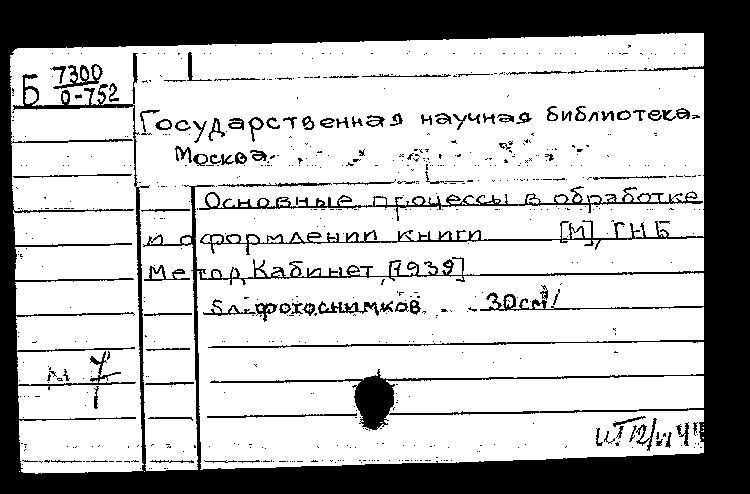 Б 7300
0-752
Государственная научная библиотека.
Москва.
Основные процессы в обработке
и оформлении книги [М], ГНБ
Метод, Кабинет, [1939]
5л. фотоснимков. 30см
м 7